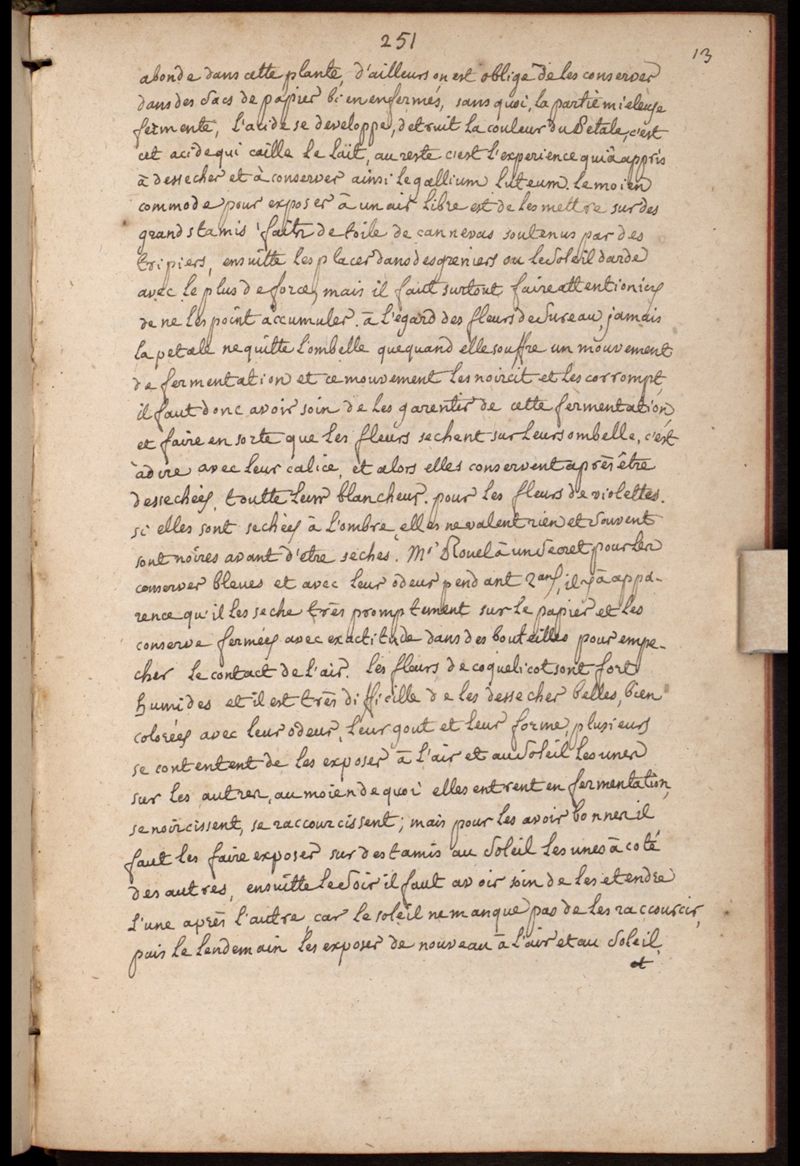 251
13
abonde dans cette plante, d'ailleurs on est obligé de les conserver
dans des sacs de papier bien enfermés, sans quoi, la partie mieleuse
fermente, l'acide se developpe, detruit la couleur du Petale, c'est
cet acide qui caille le lait, au reste c'est l'experience qui a appris
à dessecher et à conserver ainsi le gallium luteum. le moien
commode pour exposer à un air libre est de les mettre sur des
grands tamis faits de toile de cannevas soutenus par des
tripiers, ensuitte les placer dans des greniers ou le Soleil darde
avec le plus de force, mais il faut surtout faire attention icy
de ne les point accumuler. à l'égard des fleurs de Sureau, jamais
la petale ne quitte l'ombelle que quand elle souffre un mouvement
de fermentation et ce mouvement les noircit et les corrompt,
il faut donc avoir soin de les garentir de cette fermentation
et faire en sorte que les fleurs sechent sur leurs ombelle, c'est
à dire avec leur calice, et alors elles conservent après être
dessechées, toutte leur blancheur. pour les fleurs de violettes.
si elles sont sechées à l'ombre elles ne valent rien et souvent
sont noires avant d'etre seches. Mr Rouel à un secret pour les
conserver bleues et avec leur odeur pendant 2 ans, il y a appa-
rence qu'il les seche très promptement sur le papier et les
conserve fermées avec exactitude dans des bouteilles pour empe-
cher le contact de l'air. les fleurs de coquelicot sont fort
humides et il est très difficille de les dessecher belles, bien
colorées avec leur odeur, leur gout et leur forme, plusieurs
se contentent de les exposer à l'air et au Soleil les unes
sur les autres, au moien de quoi elles entrent en fermentation,
se noircissent, se raccourcissent; mais pour les avoir bonnes il
faut les faire exposer sur des tamis au Soleil les unes à coté
des autres, ensuitte le Soir il faut avoir soin de les etendre
l'une après l'autre, car le soleil ne manque pas de les raccourcir,
puis le lendemain les exposer de nouveau à l'air et au Soleil,
et